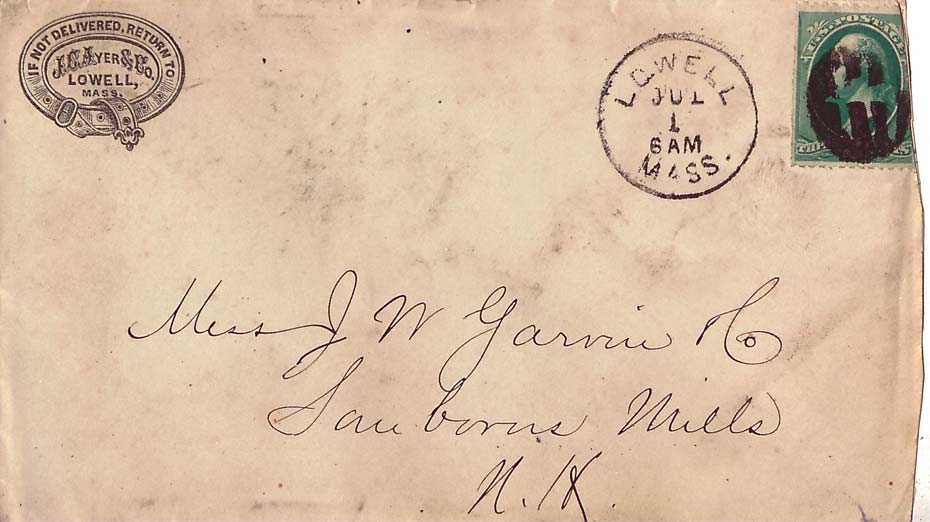 IF NOT DELIVERED, RETURN TO
J.C. AYER & CO.
LOWELL,
MASS.
LOWELL
JUL
1
6 AM
MASS.
U.S. POSTAGE
Miss J W Garvin
Sanborns Mills
N. H.